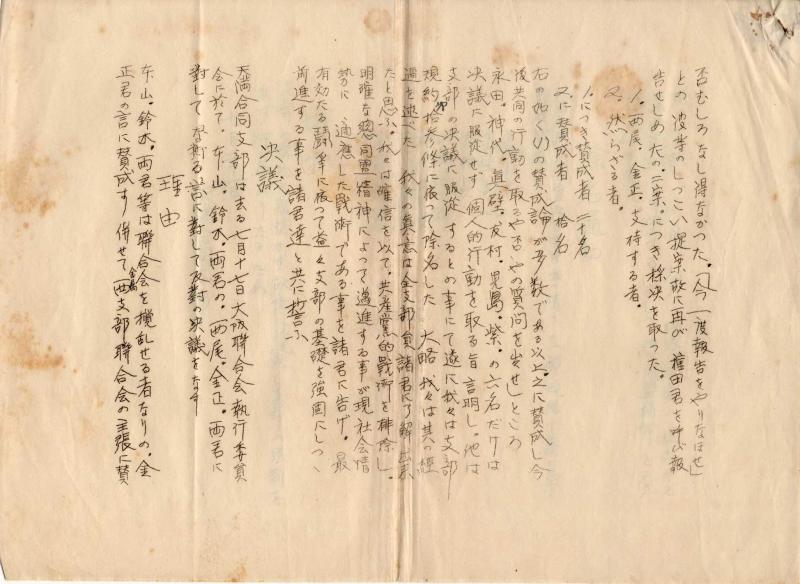 否むしろなし得なかつた。「今一度報告をやりなほせ」
との彼等のしつこい提案故に再び 権田君を呼び報
告せしめたの二案につき採決を取つた。
1. 西尾、金正、支持する者。
又、然らざる者。
1.につき賛成者 二十名
又に賛成者 拾名
右の如く(1)の賛成論が多数である以上、之に賛成し今
後共同の行動を取るや否やの質問を発せしところ
永田。神代。真壁。友村。児島。紫。の六名だけは
決議に服従せず 個人的行動を取る旨 言明し 他は
支部の決議に服従 するとの事にて遂に我々は支部
規約拾参條に依つて除名した 大略 我々は其の経
過を述べた 我々の真意は全支部員諸君に了解出来
たと思ふ。我々は確信を以て。共産党的戦術を排除し。
明確な総同盟精神によつて邁進する事が現社会情
勢に 適應した戦術である事を諸君に告げ。最
有効たる闘争に依つて益々支部の基礎を強固にしつゝ
前進する事を諸君達と共に誓ふ
決議
天満合同支部は去る七月十七日大阪聯合会執行委員
会に於て。本山。鈴木。両君の。西尾。金正。両君に
対して為せる言に対して反対の決議をなす
理由
本山。鈴木。両君等は聯合会を攪乱せる者なりの。金
正君の言に賛成す 併せて西支部聯合会の主張に賛